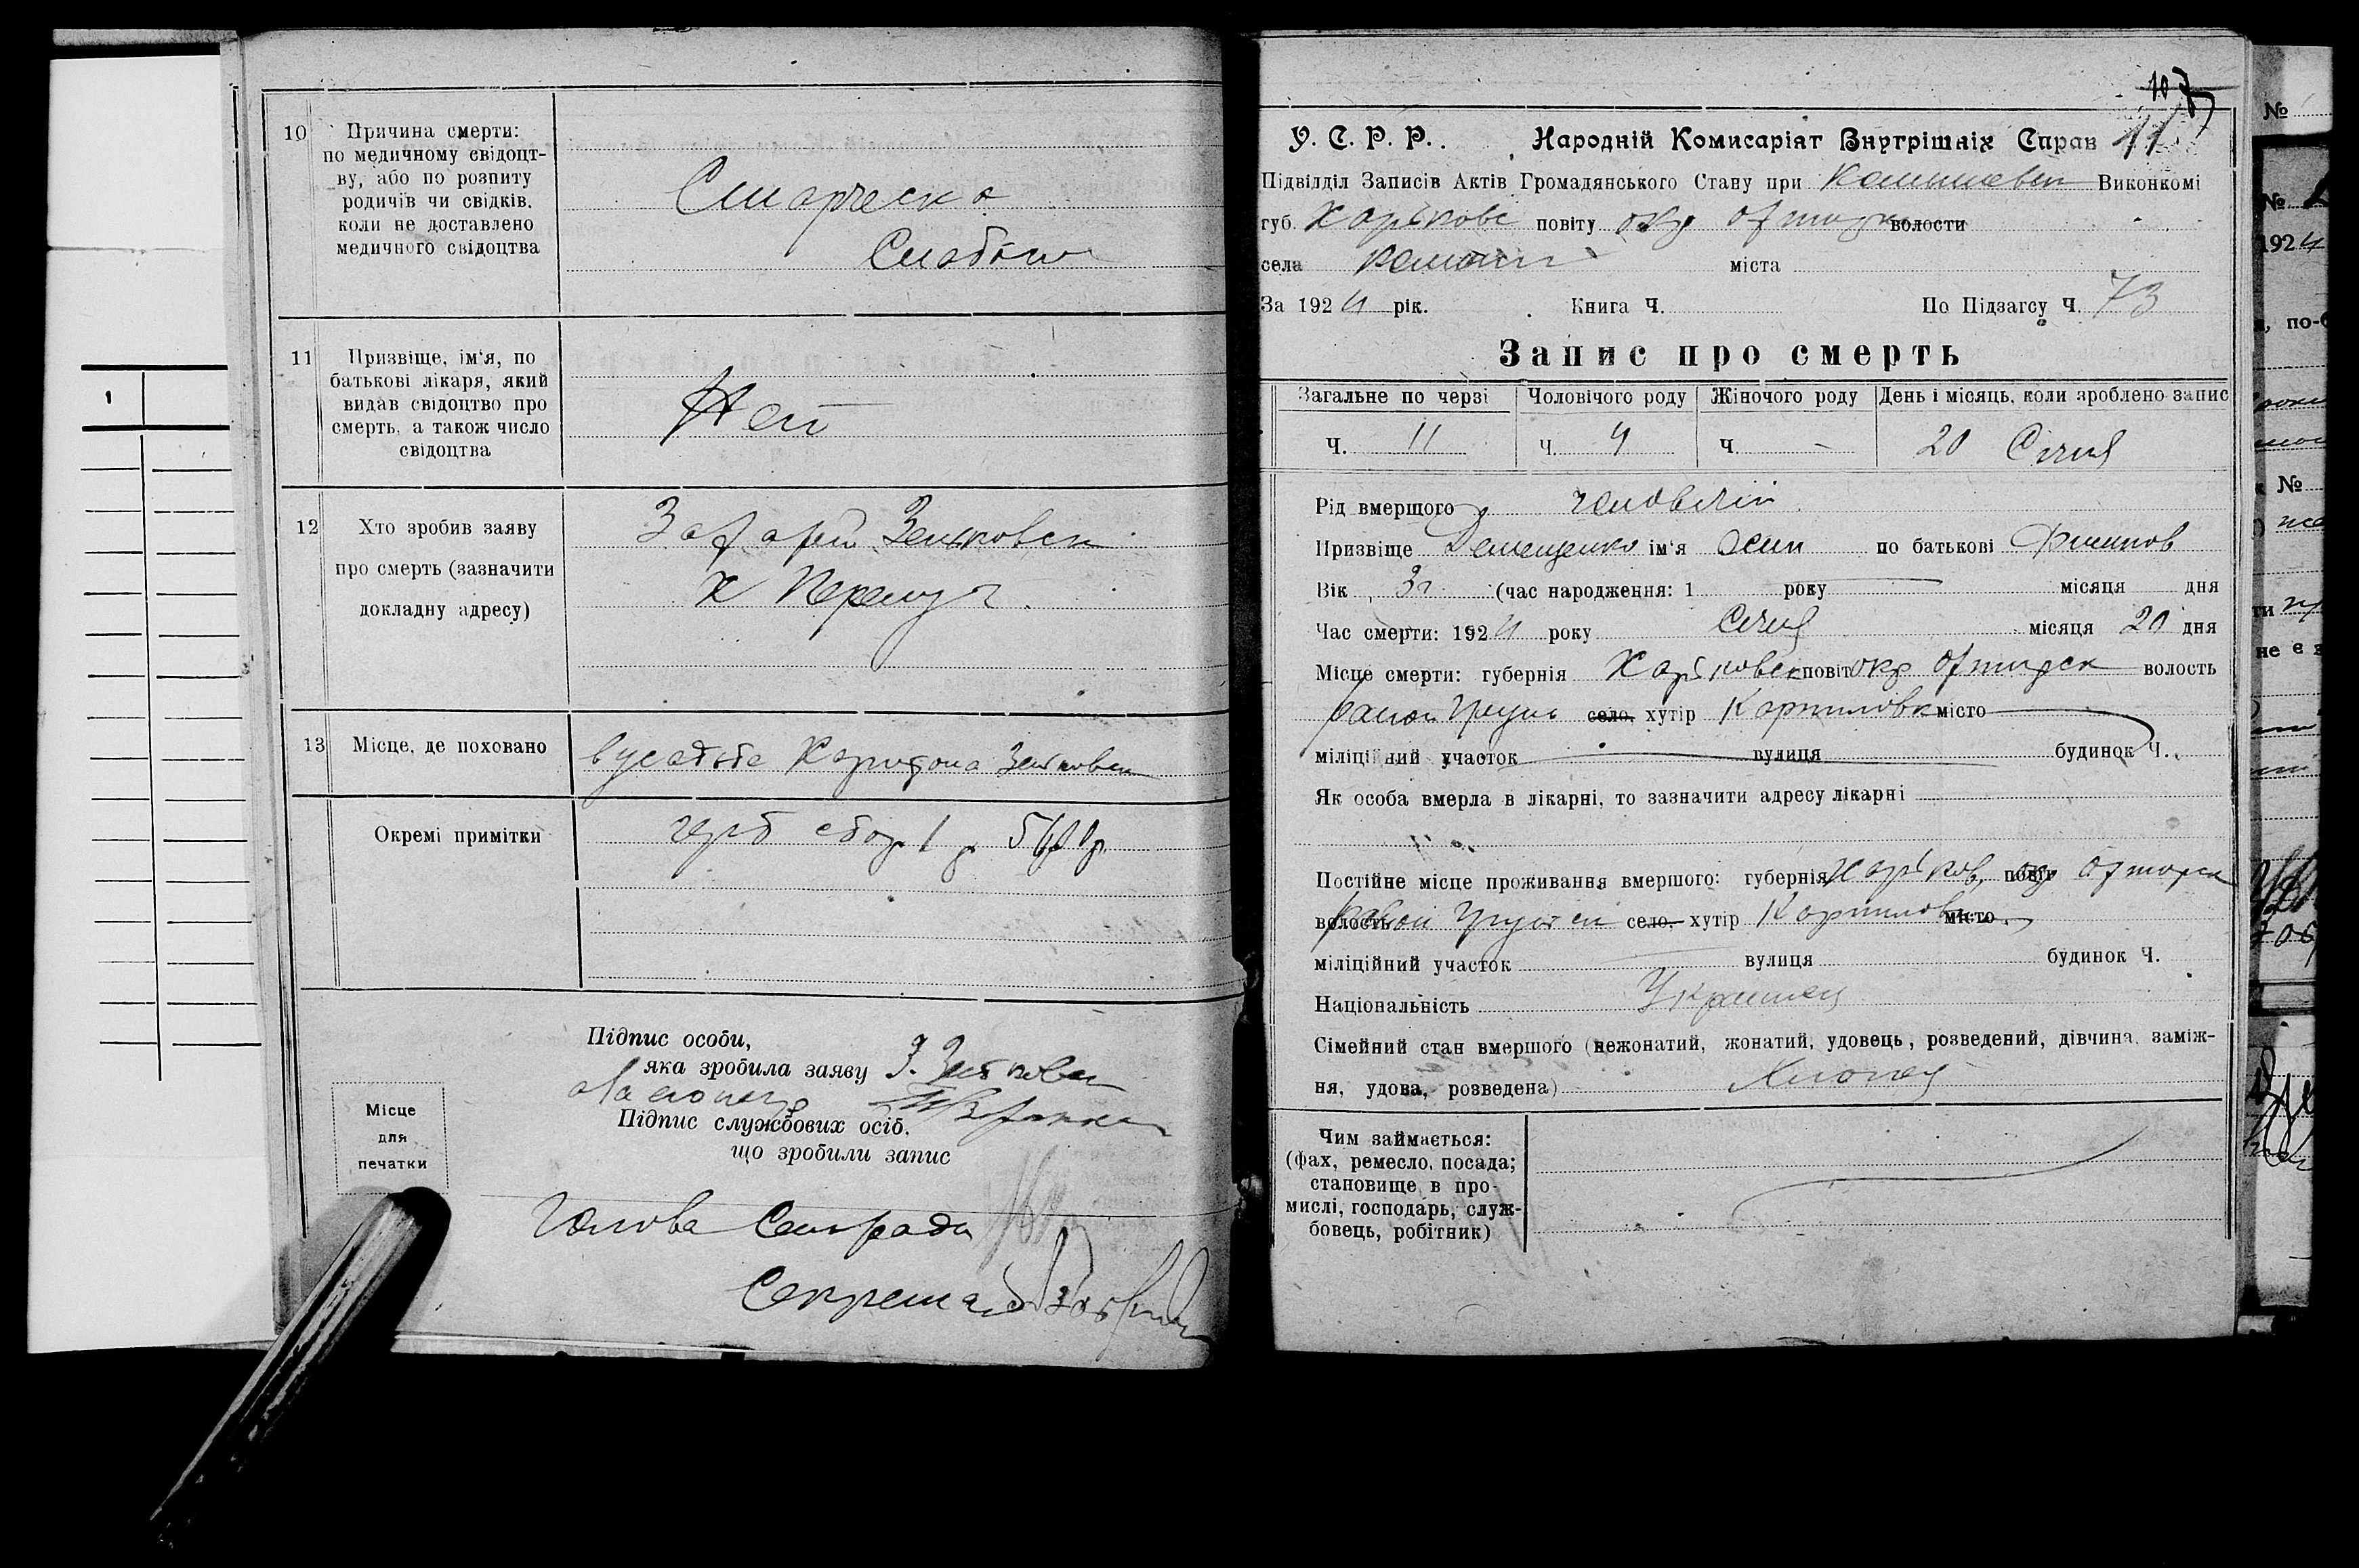 10
Причина смерти:
по медичному свідоцт-
ву, або по розпиту
родичів чи свідків,
коли не доставлено
медичного свідоцтва
Старческа
Слабость
11
Призвіще, ім'я, по
батькові лікаря, який
видав свідоцтво про
смерть, а також число
свідоцтва
Нет
12
Хто зробив заяву
про смерть (зазначити
докладну адресу)
Захарий Зеньковск
х
13
Місце, де поховано
в усадьбе Харитона Зеньковск
Окремі примітки
герб сбор 1 р
Підпис особи,
яка зробила заяву З. Зеньковск
Підпис службових осіб,
що зробили запис
Місце
для
печатки
Голова Сельради
Секретарь
1
10
11
У. С. Р. Р. Народній Комисаріят Внутрішніх Справ
Підвідділ Записів Актів Громадянського Стану при Виконкомі
губ. Харькове повіту окр Охтирк волости
села міста
За 1924 рік. Книга Ч. По Підзагсу Ч. 73
Запис про смерть
Загальне по черзі Чоловічого роду Жіночого роду День і місяць, коли зроблено запис
Ч. 11 Ч. 4 Ч. - 20 Січня
Рід вмерщого
Призвіще Демещенко ім'я Осип по батькові Филипов
Вік 3г (час народження: 1 року місяця дня
Час смерти: 1924 року Січня місяця 20 дня
Місце смерти: губернія Харьковск повіт окр Охтирск волость
район Грунь село, хутір Корниловк місто
міліційний участок вулиця будинок Ч.
Як особа вмерла в лікарні, то зазначити адресу лікарні
Постійне місце проживання вмершого: губернія Харьков, повіт окр Охтирск
волость район село, хутір Корнилов місто
міліційний участок вулиця будинок Ч.
Національність Украинец
Сімейний стан вмершого (нежонатий, жонатий, удовець, розведений, дівчина, заміж-
ня, удова, розведена) Хлопец
Чим займається:
(фах, ремесло, посада;
становище в про-
мислі, господарь, служ-
бовець, робітник)
№
№
1924
, по-б
№
не є з